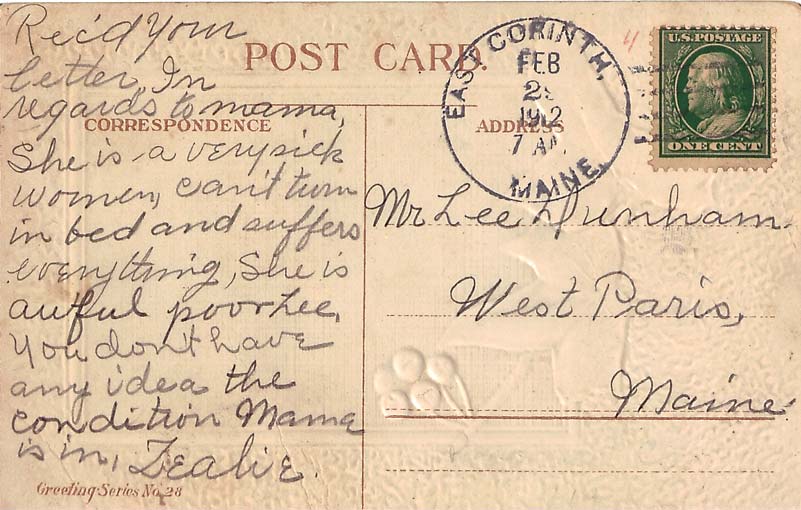 Rec'd your
letter, In
regards to mama,
She is a very sick
women, can't turn
in bed and suffers
everything, She is
awful poor Lee,
You don't have
any idea the
condition Mama
is in, Zealie.
POST CARD.
CORRESPONDENCE
ADDRESS
EAST CORINTH,
FEB
1912
7 AM
MAINE.
4
U.S. POSTAGE
ONE CENT
Mr Lee Dunham
West Paris,
Maine
Greeting Series No. 28